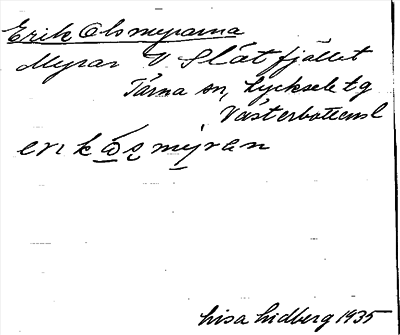 Erik Olsmyrarna
Myrar V Slåtfjället
Tärna sn, Lycksele tg
Västerbottens l
erikåsmýran
Lisa Lidberg 1935